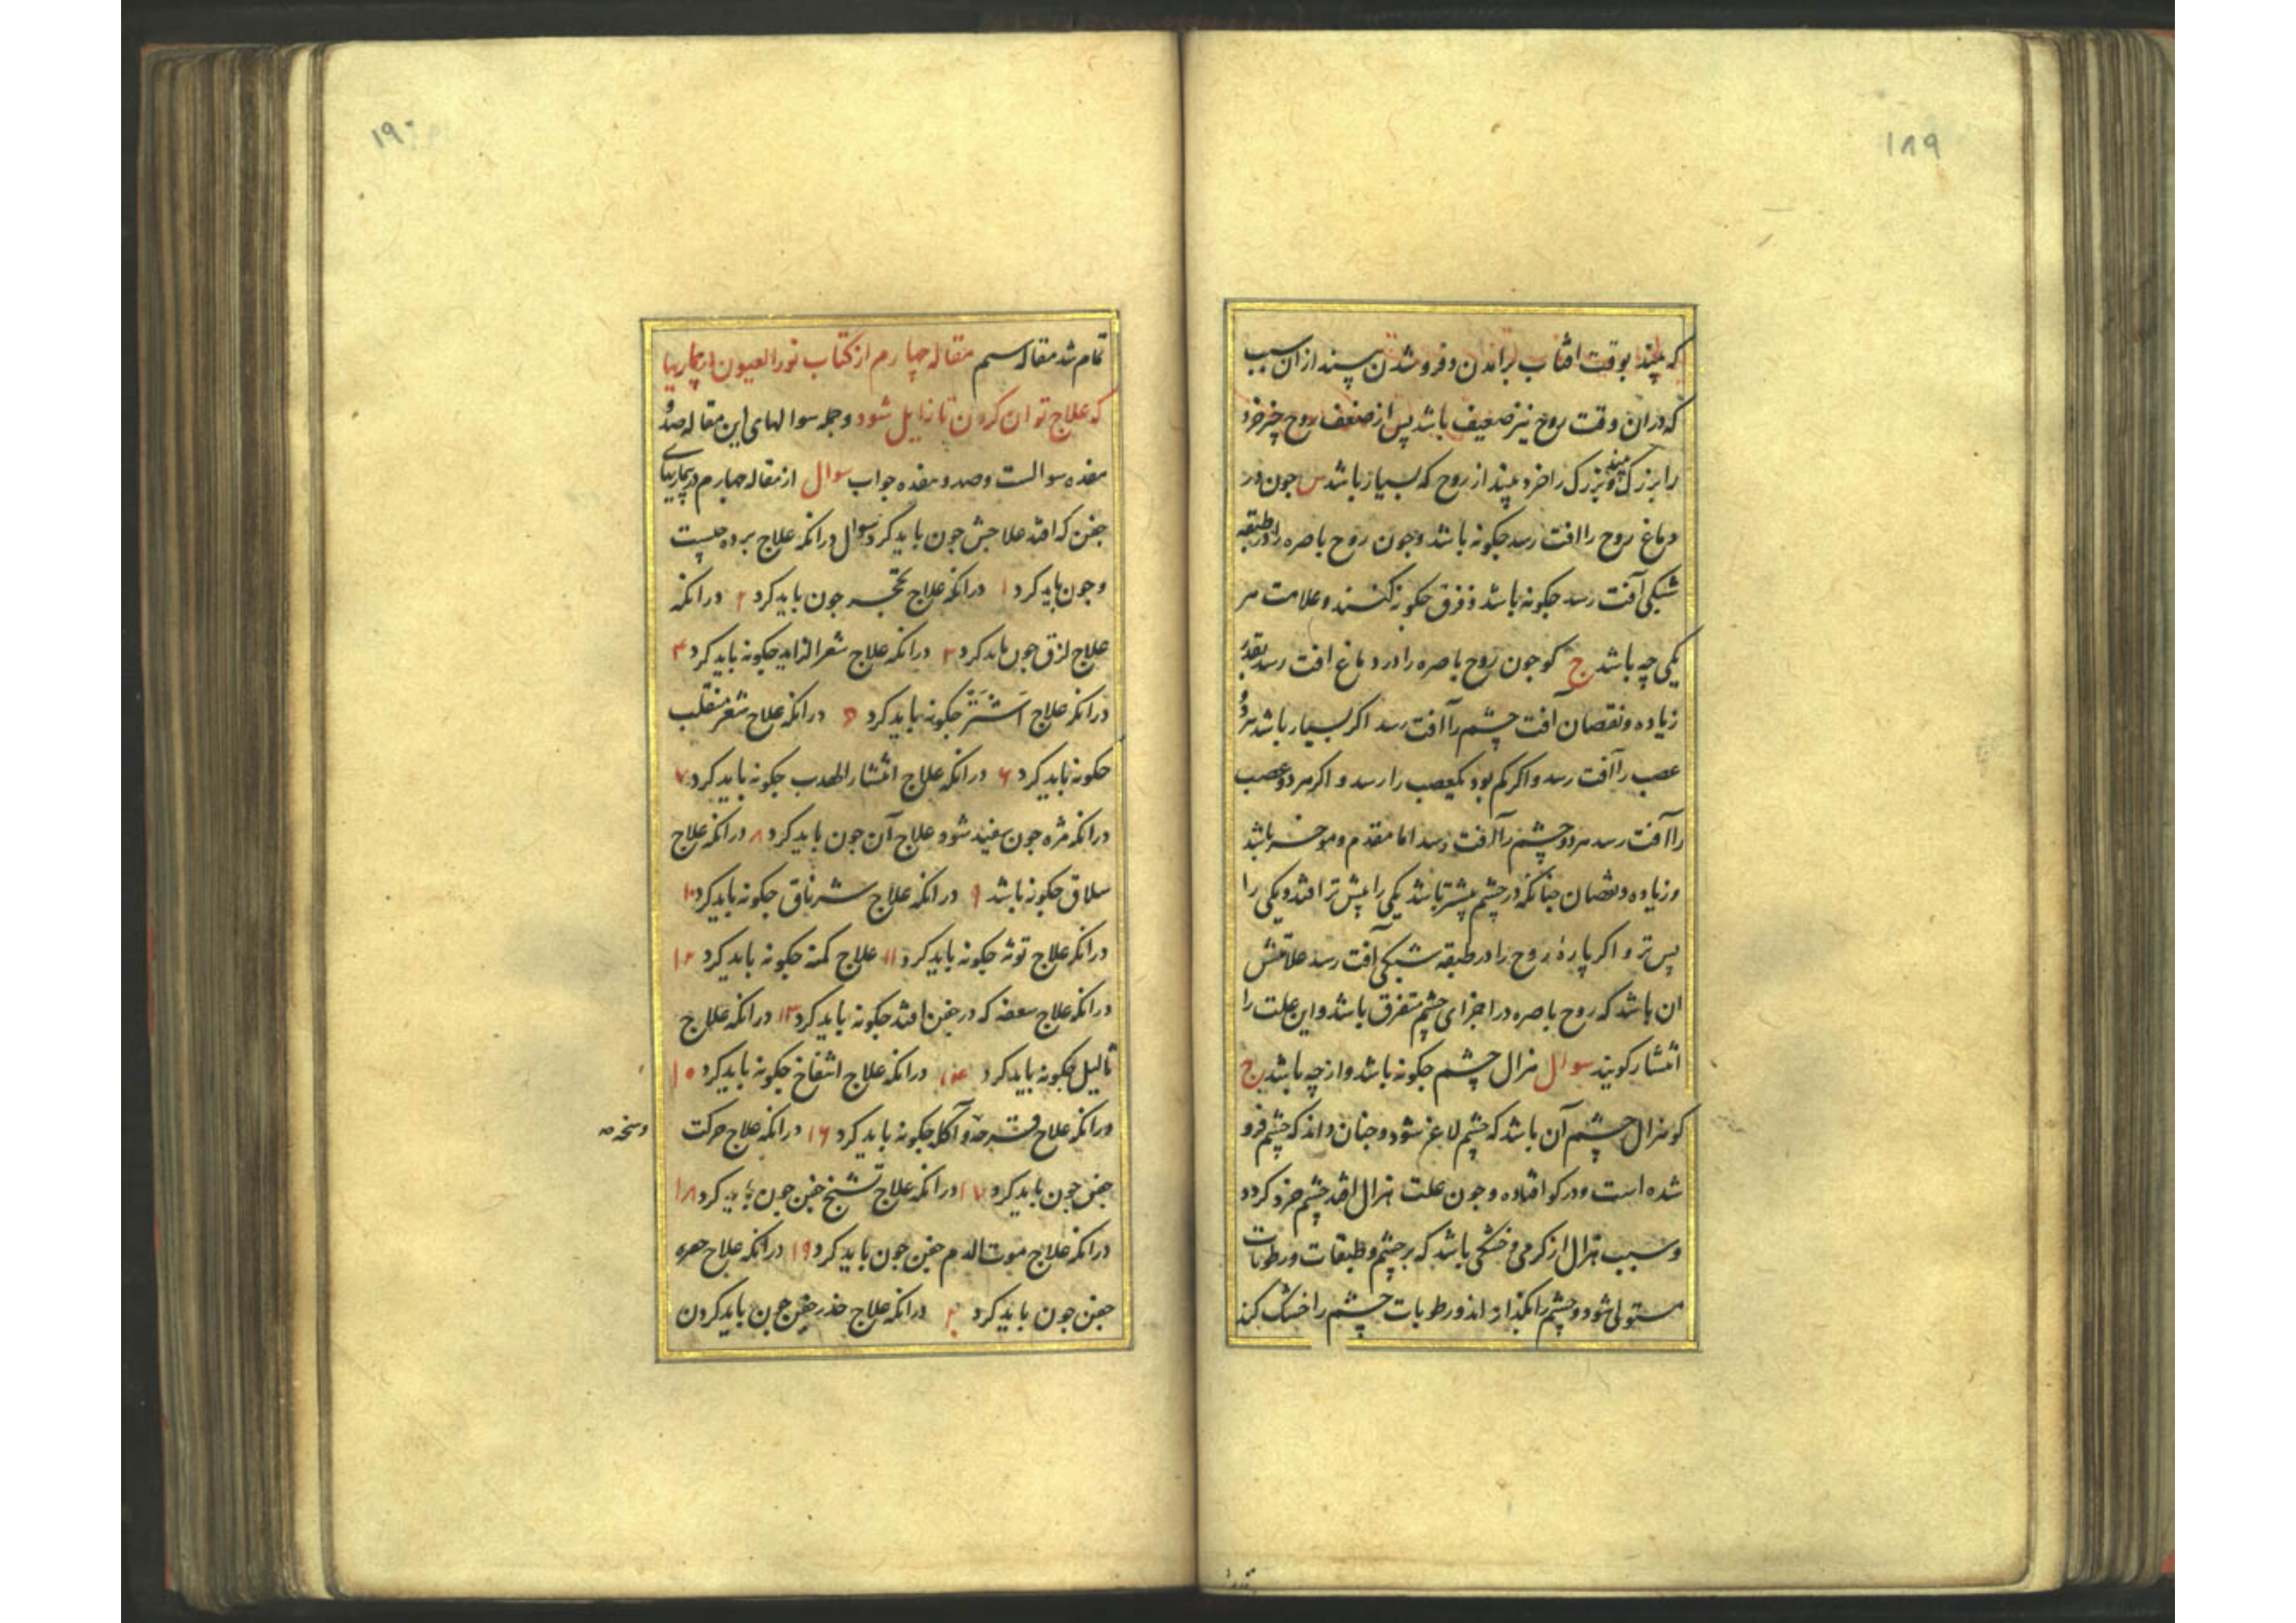 ۱۸۹
که بیند بوقت افتاب برامدن و فروشدن بیند از ان سبب
که دران وقت روح نیز ضعیف باشد پس از ضعف روح چیز خرد
را بزرک بیند و بزرک را خرد بیند از روح که بسیار باشد س جون در
دماغ روح را افت رسد جکونه باشد و جون روح باصره را در طبقه
شبکی آفت رسد جکونه باشد و فرق جکونه کنند و علامت هر
یکی چه باشد ج کو جون روح باصره را در دماغ افت رسد بقدر
زیاده و نقصان افت چشم را آفت رسد اکر بسیار باشد هر دو
عصب را آفت رسد و اکر کم بود یکعصب را رسد و اکر هر دو عصب
را آفت رسد هر دو چشم را آفت رسد اما مقدم و موخر باشد
و زیاده و نقصان جنانکه در چشم پیشتر باشد یکی را پیش تر افتد و یکی را
پس تر و اکر پاره روح را در طبقه شبکی آفت رسد علامتش
ان باشد که روح باصره در اجزای چشم متفرق باشد و این علت را
انتشار کویند سوال هزال چشم جکونه باشد و از چه باشد ج
کو هزال چشم آن باشد که چشم لاغر شود و جنان داند که چشم فرو
شده است و در کو افتاده و جون علت هزال افتد چشم خرد کردد
و سبب هزال از کرمی و خشکی باشد که بر چشم و طبقات و رطوبات
مستولی شود و چشم را بکدازاند و رطوبات چشم را خشک کند
۱۹۰
تمام شد مقاله سیم مقاله چهارم از کتاب نور العیون
که علاج توان کردن تا زایل شود و جمله سوالهای این مقاله صد و
هفده سوالست و صد و هفده جواب سوال از مقاله جهارم در بیماریهای
جفن که افتد علاجش جون باید کرد سوال درانکه علاج برده جیست
و جون باید کرد ۱ درانکه علاج تحجر جون باید کرد ۲ درانکه
علاج لزق جون باید کرد ۳ درانکه علاج شعر الزاید جکونه باید کرد ۴
درانکه علاج اَشتر جکونه باید کرد ۵ درانکه علاج شعر منقلب
جکونه باید کرد ۶ درانکه علاج انتشار الهدب جکونه باید کرد ۷
درانکه مژه جون سفید شود علاج آن جون باید کرد ۸ درانکه علاج
سلاق جکونه باشد ۹ درانکه علاج شرناق جکونه باید کرد ۱۰
درانکه علاج توثه جکونه باید کرد ۱۱ علاج کمنه جکونه باید کرد ۱۲
درانکه علاج سعفه که در جفن افتد جکونه باید کرد ۱۳ درانکه علاج
ثالیل جکونه باید کرد ۱۴ درانکه علاج انتفاخ جکونه باید کرد ۱۵
درانکه علاج قرحه و آکله جکونه باید کرد ۱۶ درانکه علاج حرکت
جفن جون باید کرد ۱۷ درانکه علاج تشنج جفن جون باید کرد ۱۸
درانکه علاج موت الدم جفن جون باید کرد ۱۹ درانکه علاج
جفن جون باید کرد ۲۰ درانکه علاج خدر جفن جون باید کردن